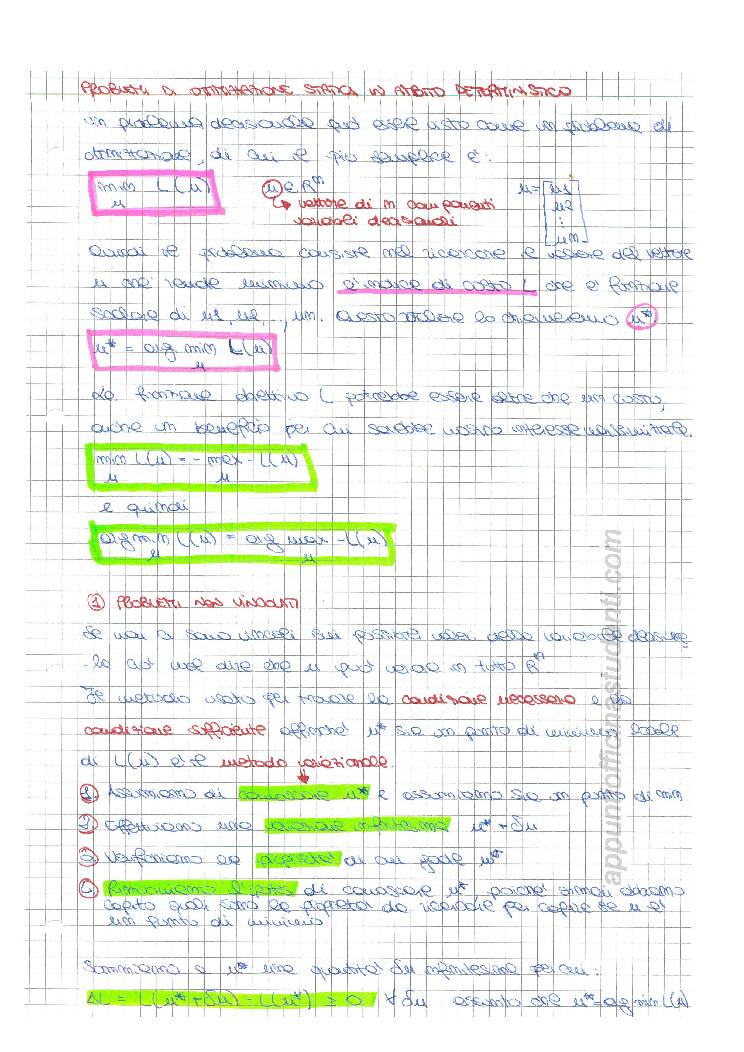 PROBLEMI DI OTTIMIZZAZIONE STATICA IN AMBITO DETERMINISTICO
Un problema decisionale può essere visto come un problema di
ottimizzazione, di cui il più semplice è:
min L(u)
u
u ∈ R^m
→ vettore di m componenti
variabili decisionali
u = [u1
u2
⋮
um]
Quindi il problema consiste nel ricercare il valore del vettore
u che rende minimo l'indice di costo L che è funzione
scalare di u1, u2, ..., um. Questo valore lo chiameremo u*.
u* = arg min L(u)
u
La funzione obiettivo L potrebbe essere oltre che un costo,
anche un beneficio per cui sarebbe nostro interesse massimizzare.
min L(u) = - max - L(u)
u u
e quindi
arg min L(u) = arg max -L(u)
u u
① PROBLEMI NON VINCOLATI
Se non ci sono vincoli sui possibili valori della variabile decisiona-
-le ciò vuol dire che u può variare in tutto R^m
Il metodo usato per trovare la condizione necessaria e la
condizione sufficiente affinché u* sia un punto di minimo locale
di L(u) è il metodo variazionale.
1. Assumiamo di conoscere u* e assumiamo sia un punto di min
2. Effettuiamo una variazione infinitesima u* + δu
3. Verifichiamo le proprietà di cui gode u*
4. Rimuoviamo l'ipotesi di conoscere u* poiché ormai abbiamo
capito quali sono le proprietà da ricercare per capire se u è
un punto di minimo
Sommiamo a u* una quantità δu infinitesima per cui:
ΔL = L(u* + δu) - L(u*) ≥ 0 ∀ δu assunto che u* = arg min L(u)
appuntiofficinastudenti.com